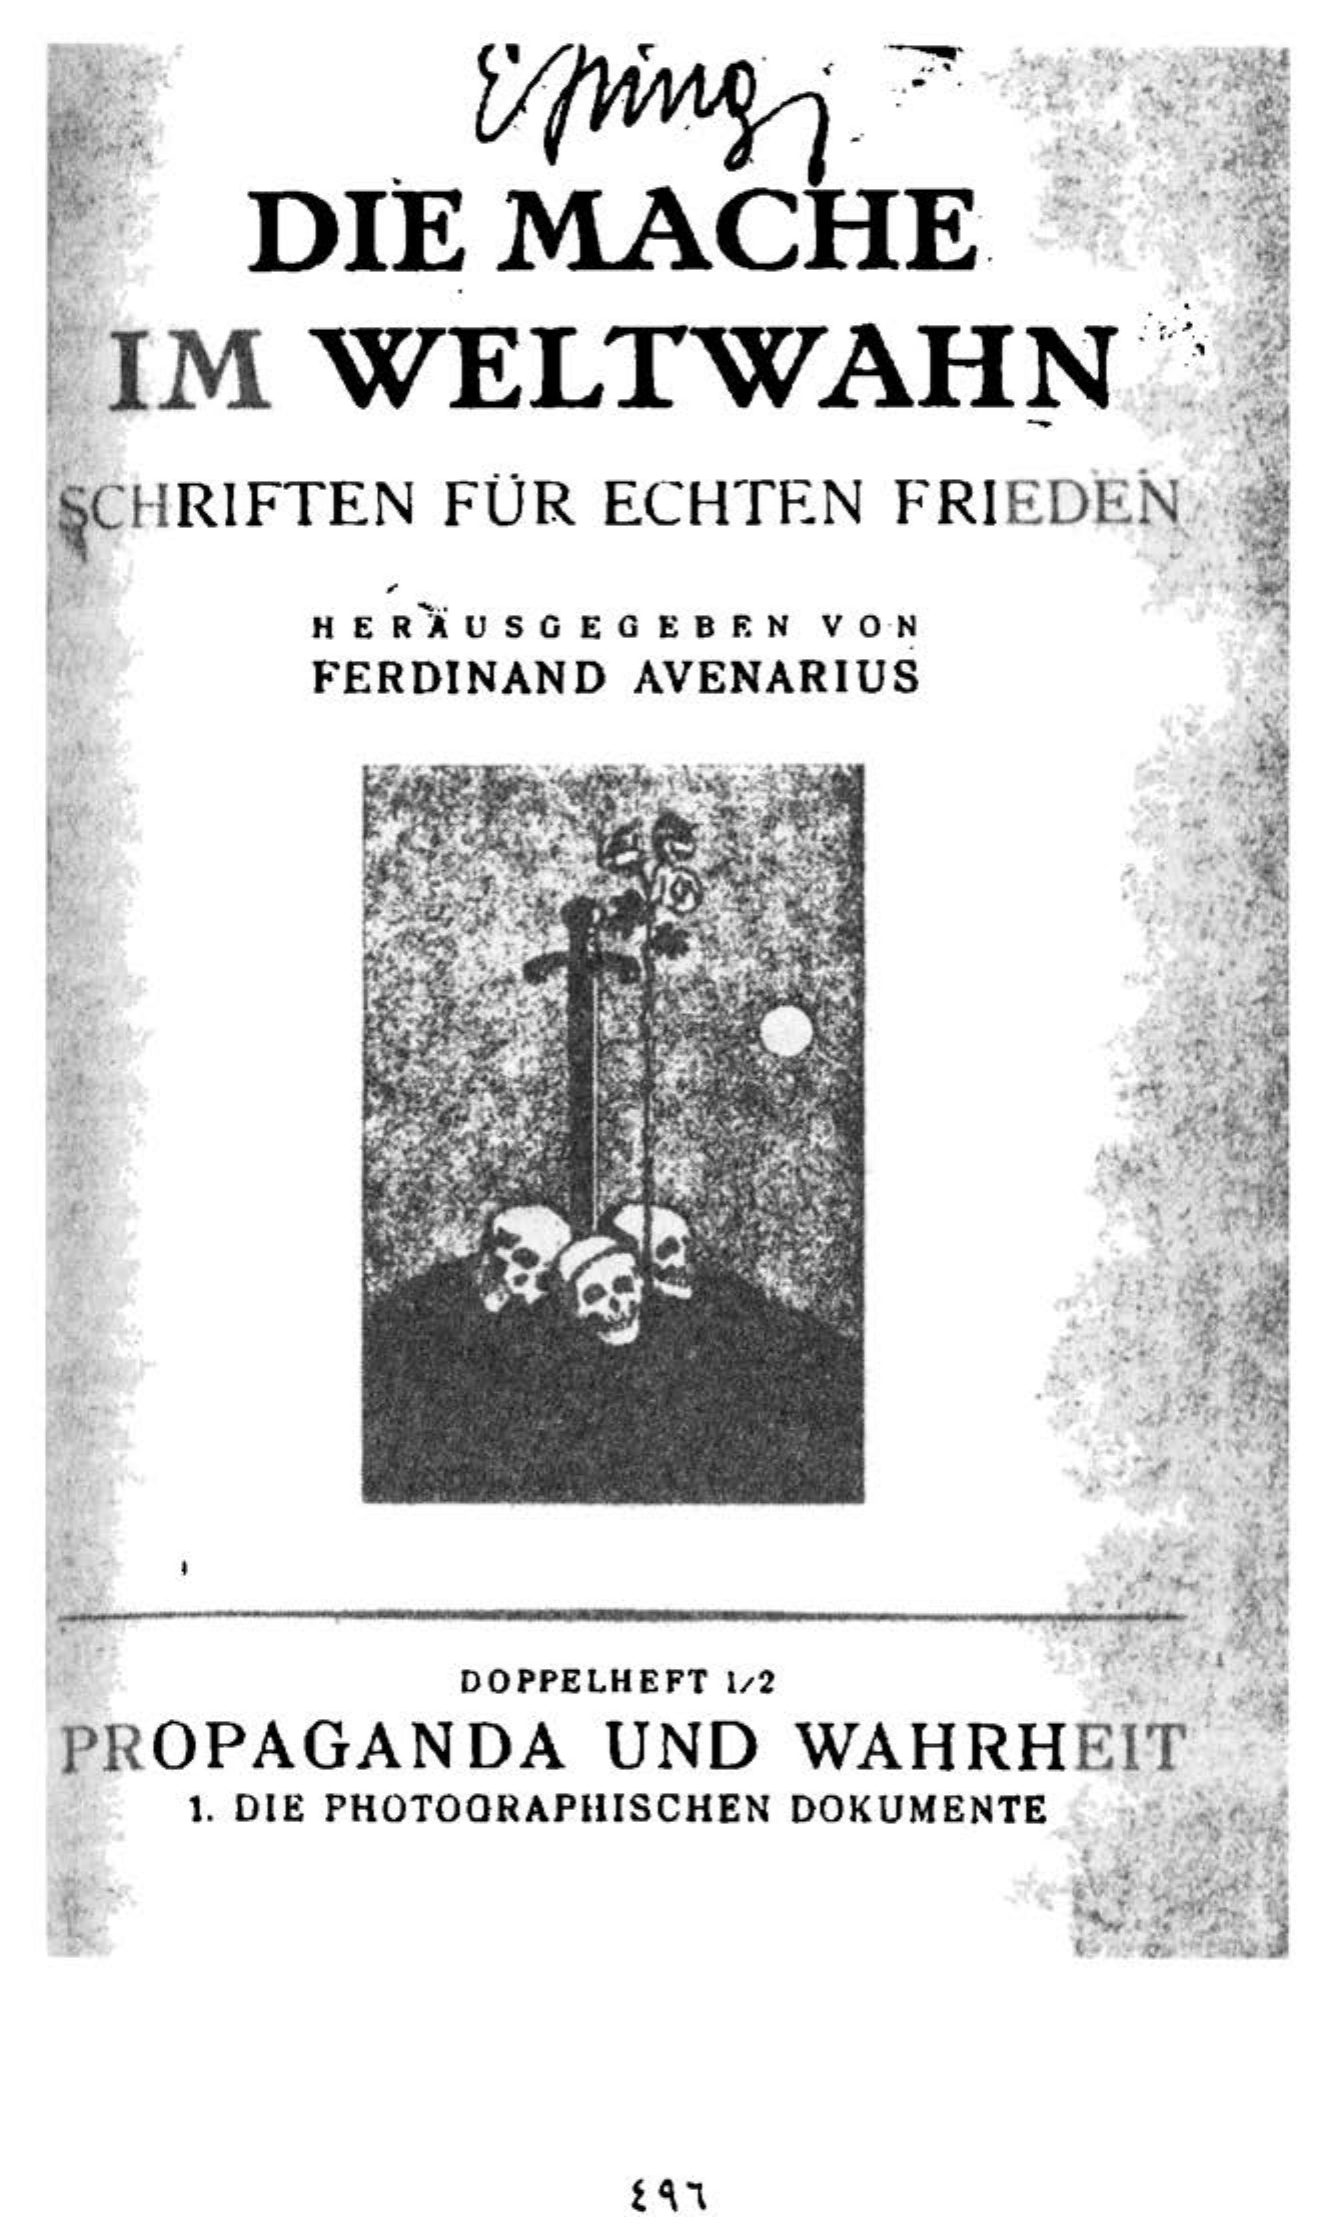 DIE MACHE
IM WELTWAHN
SCHRIFTEN FÜR ECHTEN FRIEDEN
HERAUSGEGEBEN VON
FERDINAND AVENARIUS
DOPPELHEFT 1/2
PROPAGANDA UND WAHRHEIT
1. DIE PHOTOGRAPHISCHEN DOKUMENTE
٤٩٦